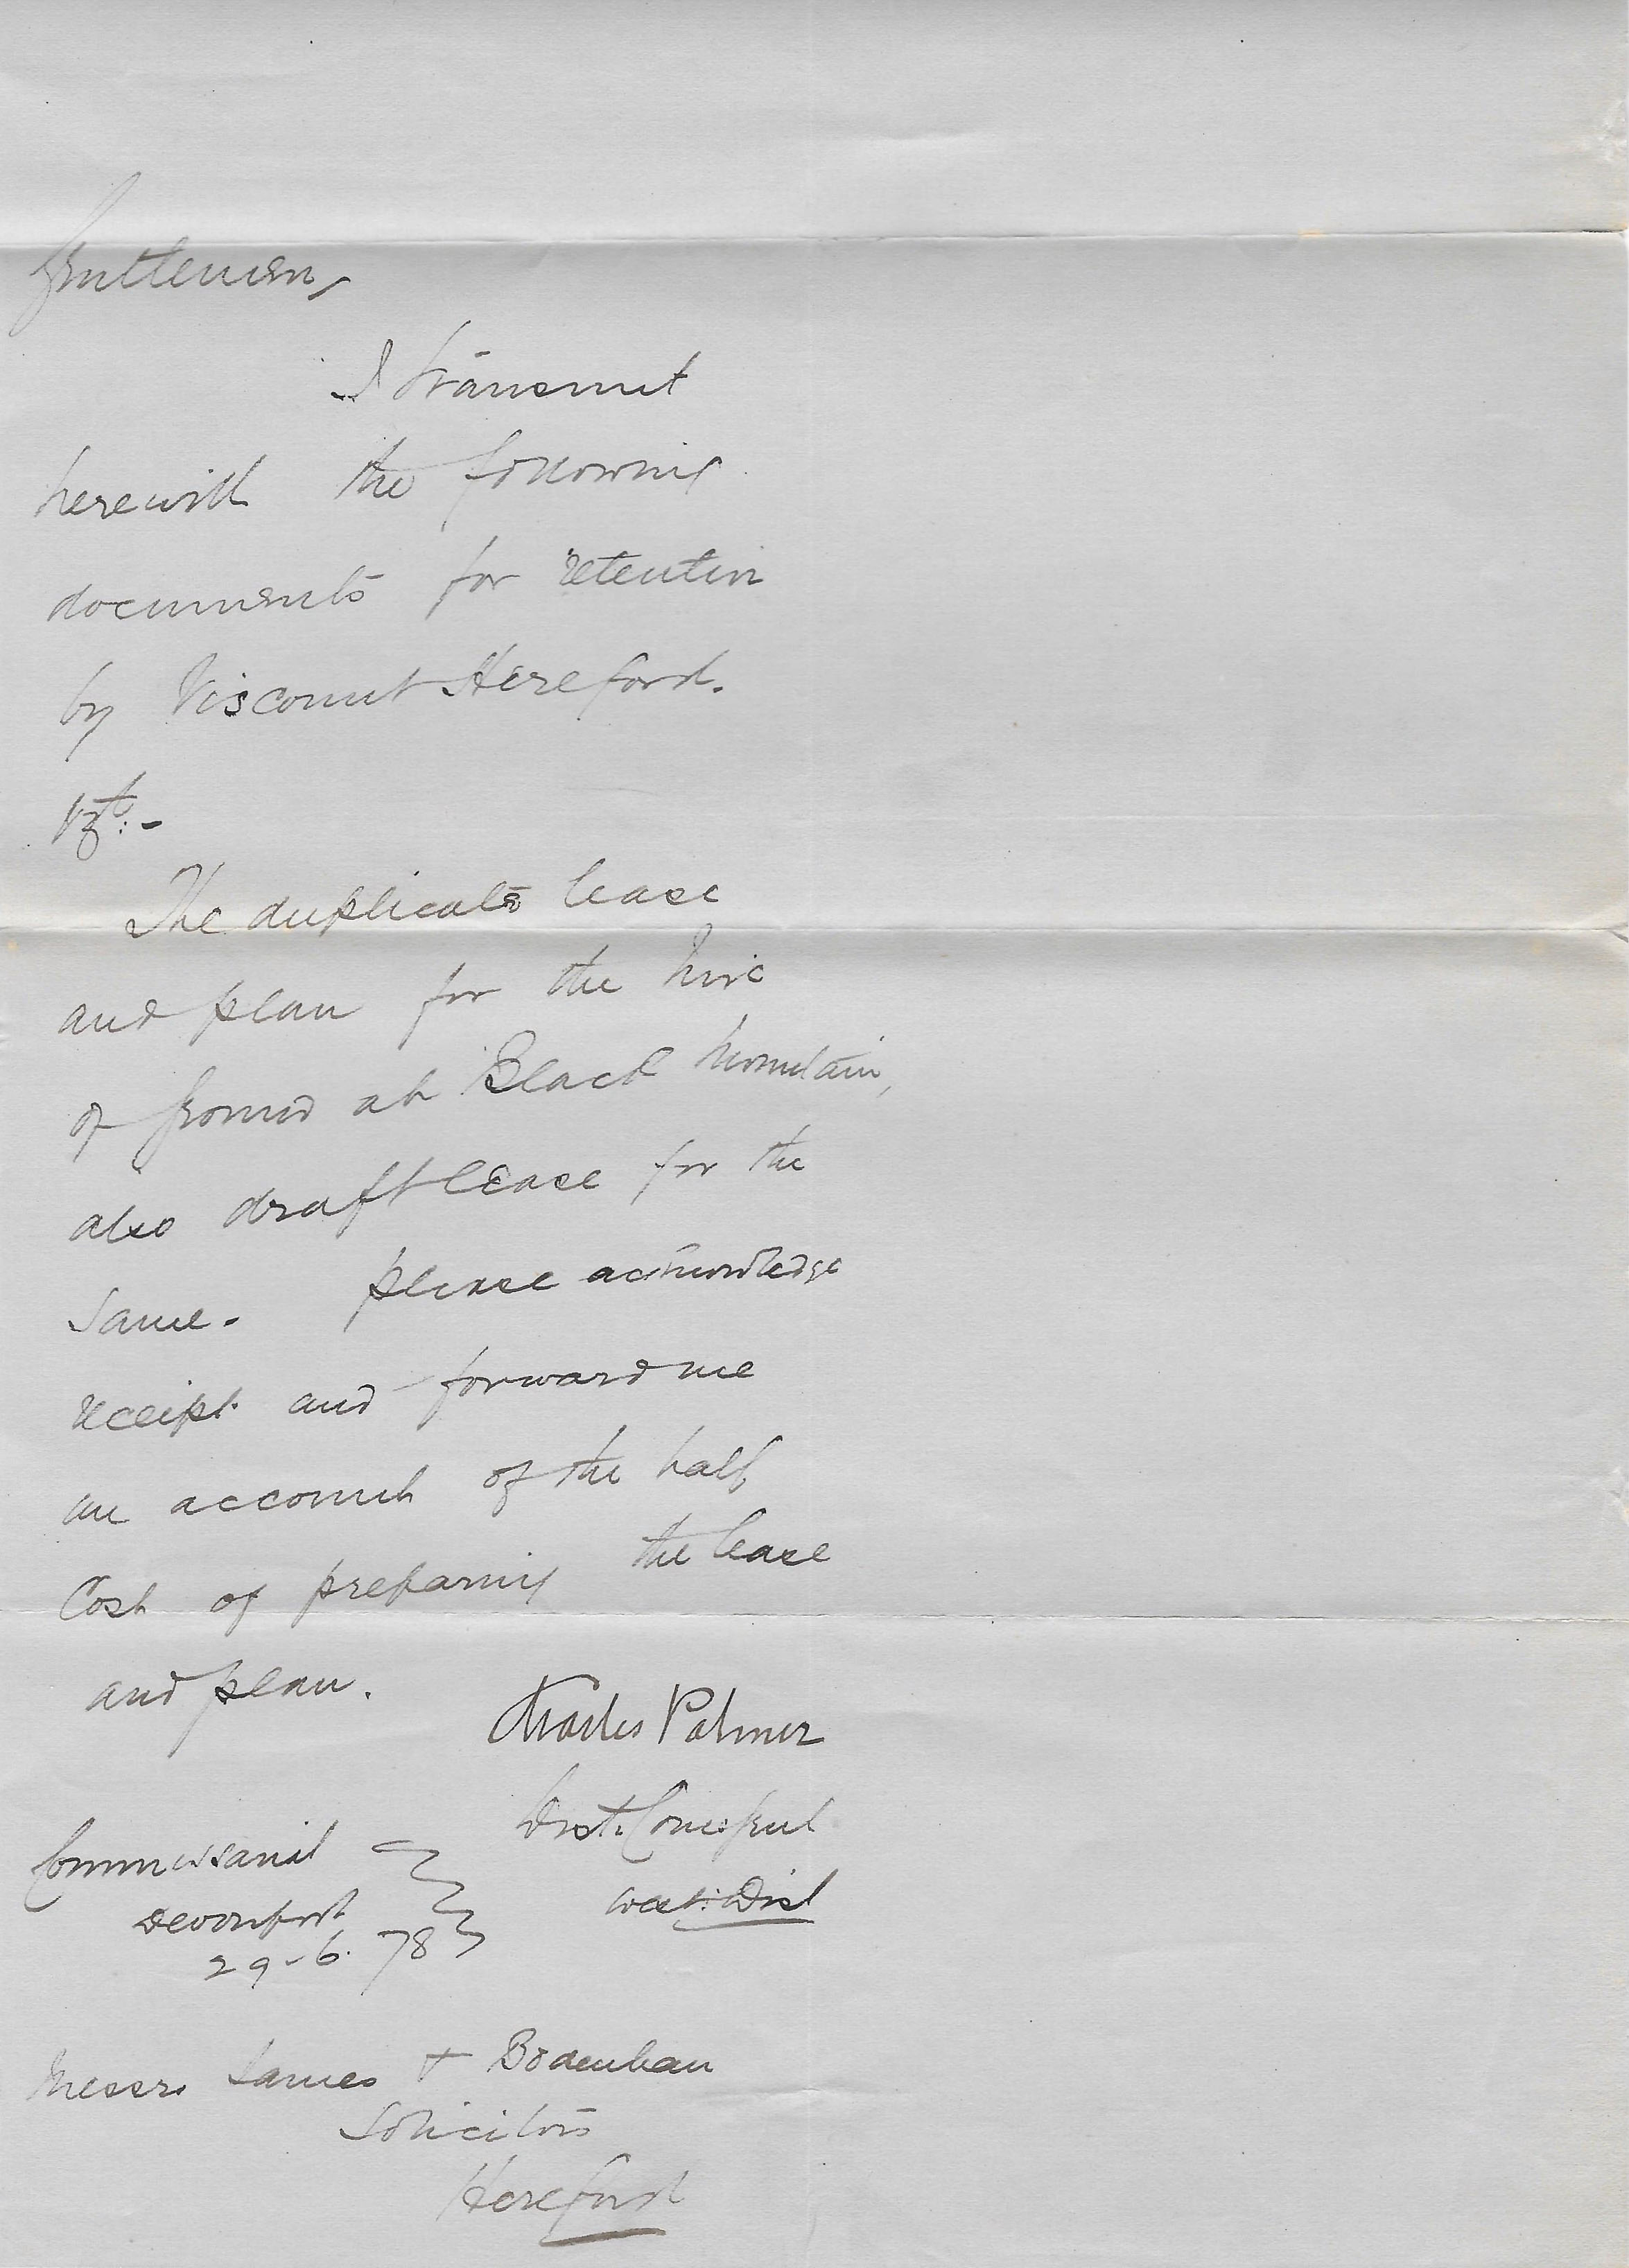 Gentlemen,
I transmit
herewith the following
documents for retention
by Viscount Hereford.
Vizt:-
The duplicate lease
and plan for the hire
of ground at Black Mountain,
also draft lease for the
same. Please acknowledge
receipt and forward me
an account of the half
Cost of preparing the lease
and plan.
Charles Palmer
Dist.
West: Dist
Commissariat
Devonport
29-6-78
Messrs James & Bodenham
Solicitors
Hereford